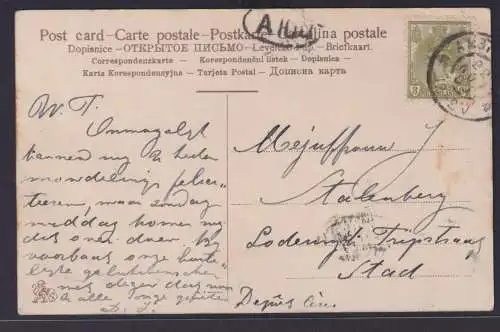 Post card – Carte postale – Postkarte – Cartolina postale
Dopisnice – ОТКРЫТОЕ ПИСЬМО – Levelező-Lap – Briefkaart.
Correspondenzkarte – Korespondenční lístek – Dopisnica –
Karta Korespondencyjna – Tarjeta Postal – Дописна карта
W. T.
Onmogelyk
kunnen wy u heden
mondelings felici-
teeren, maar zondag
middag komen wy
dat even doen. By
voorbaat onze harte-
lyke gelukwenschen
met dezen dag van
u alle
Mejuffrouw J
Stalenberg
Lodewyk Tripstraat
Stad
AMST
3